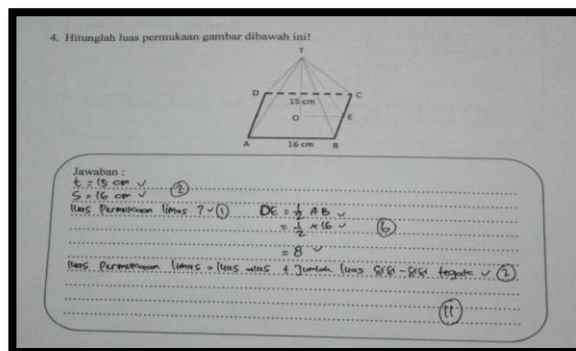 4. Hitunglah luas permukaan gambar dibawah ini!
T
D
C
15 cm
O
E
A
16 cm
B
Jawaban :
t = 15 cm ✓
S = 16 cm ✓ (2)
luas Permukaan limas ? ✓ (1) OE = 1/2 AB ✓
= 1/2 × 16 ✓ (6)
= 8 ✓
luas Permukaan limas = luas alas + Jumlah luas sisi-sisi tegak ✓ (2)
(11)